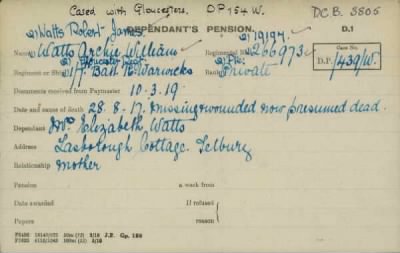 Cased with Gloucesters. DP 154 W. DCB. 3805
2) Watts Robert James DEPENDANT'S PENSION. 2) 19197. D.1
Name Watts Archie William Regimental No. 266973 Case No.
2) Gloucester Regt. 2) Pte. D.P. 1/439/W.
Regiment or Ship 1/7. Batt R. Warwicks Rank Private
Documents received from Paymaster 10.3.19.
Date and cause of death 28.8.17. missing & wounded now presumed dead.
Dependant Mrs Elizabeth Watts
Address Lasborough Cottage. Tetbury
Relationship mother
Pension a week from
Date awarded If refused
Papers reason